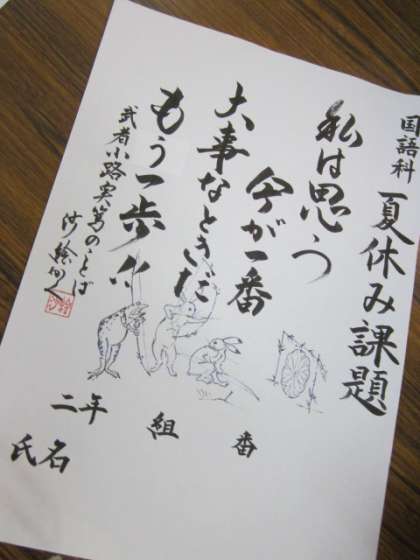 国語科 夏休み課題
私は思う
今が一番
大事なときだ
もう一歩
武者小路実篤のことば
二年 組 番
氏名